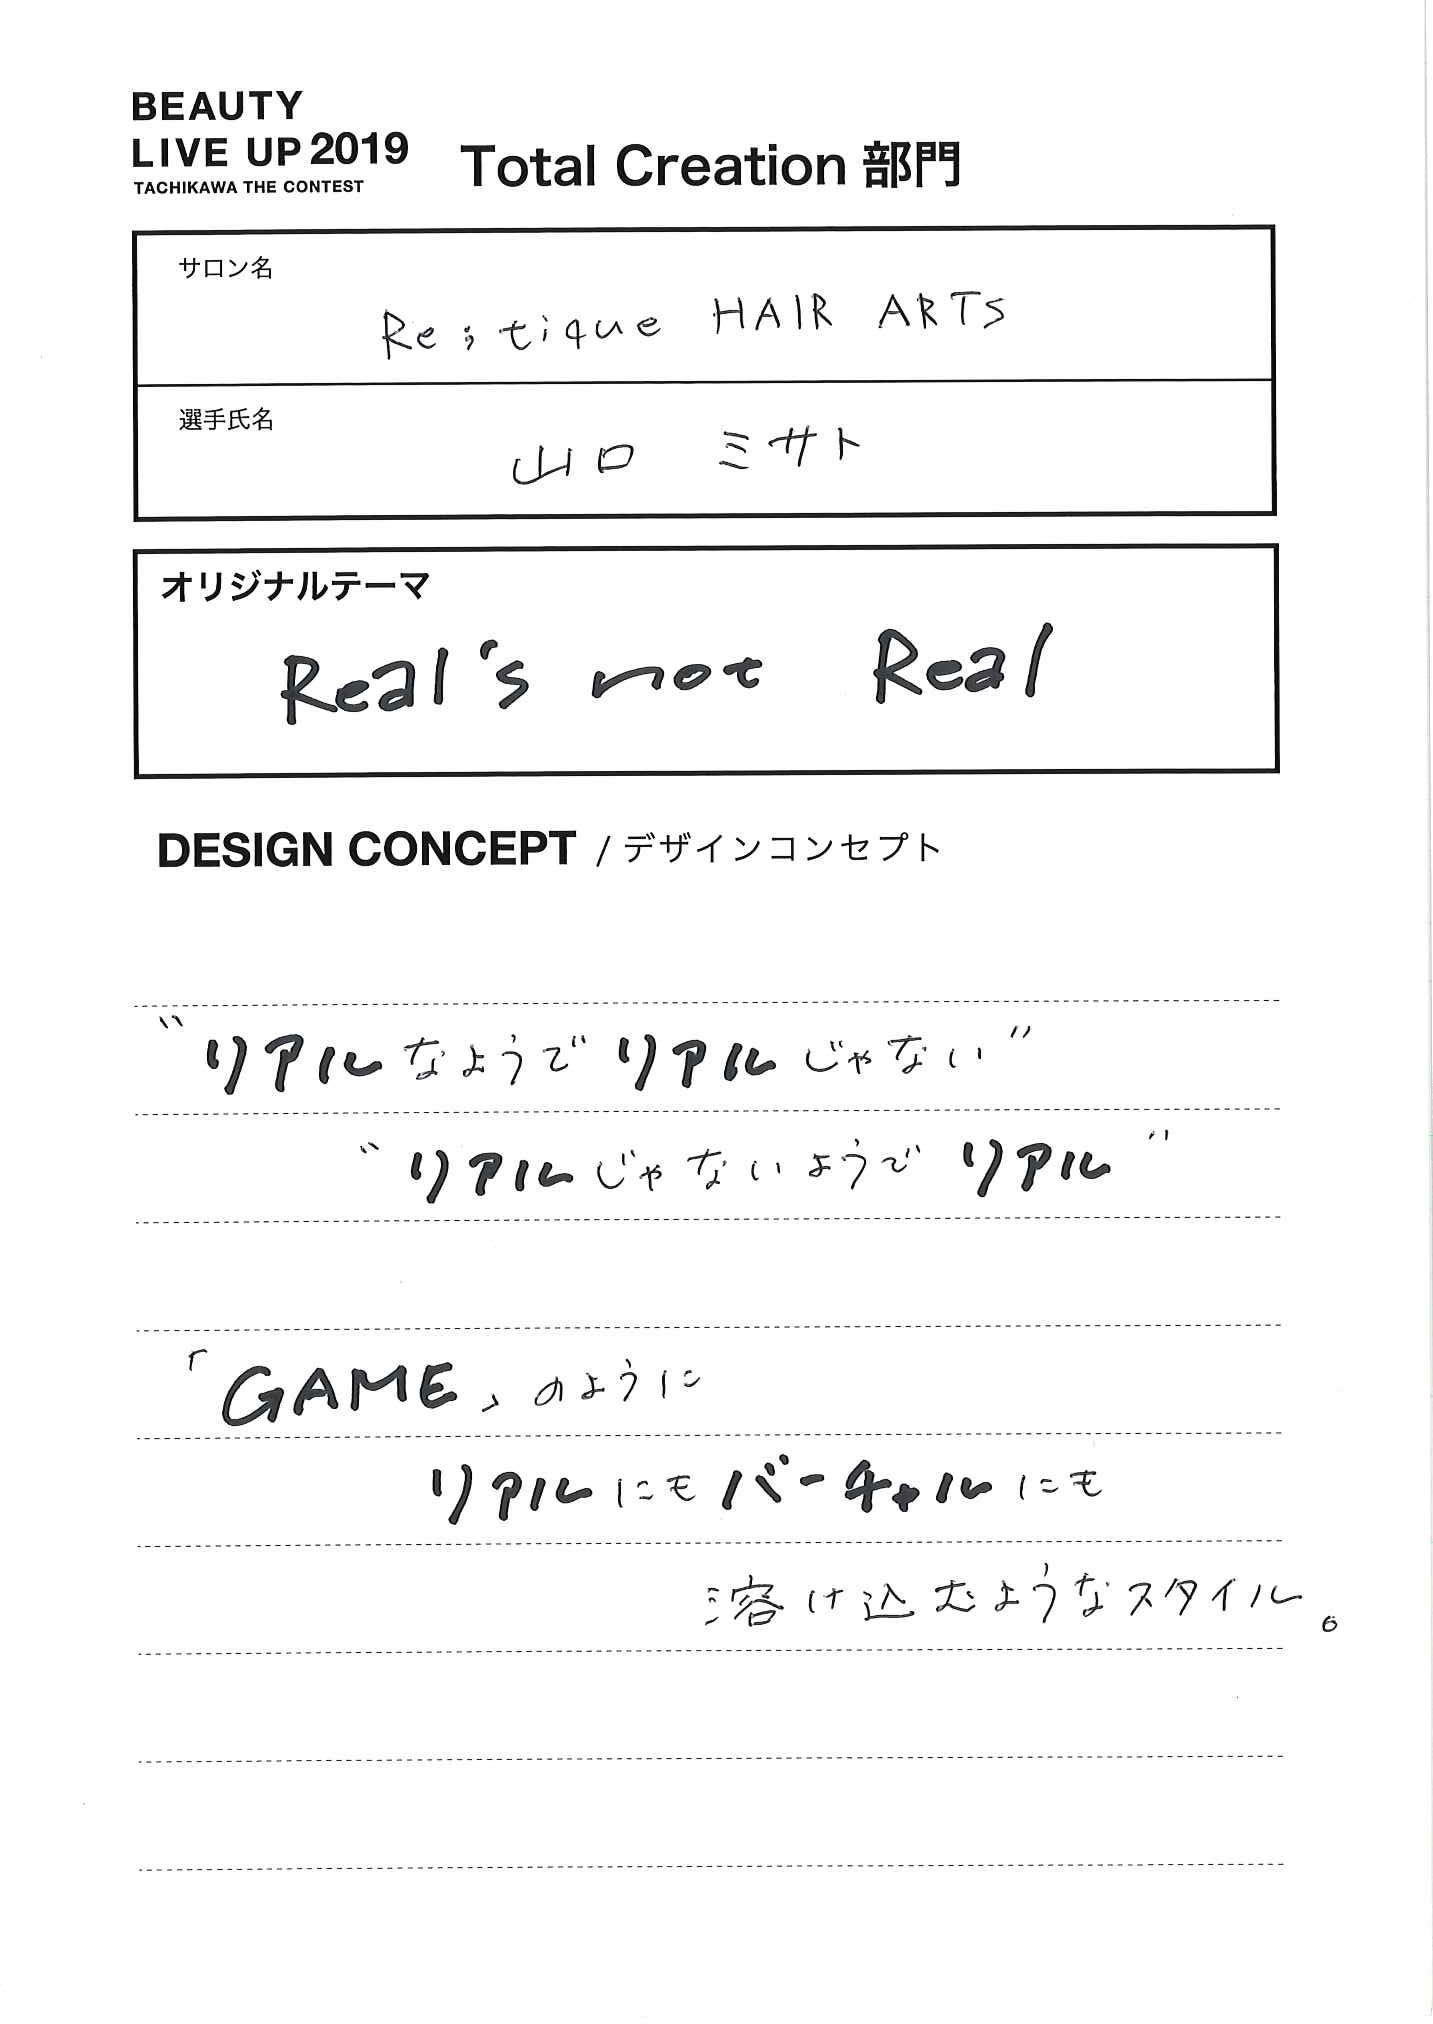 BEAUTY
LIVE UP 2019
TACHIKAWA THE CONTEST
Total Creation 部門
サロン名
Re;tique HAIR ARTS
選手氏名
山口 ミサト
オリジナルテーマ
Real's not Real
DESIGN CONCEPT / デザインコンセプト
"リアルなようでリアルじゃない"
"リアルじゃないようでリアル"
「GAME」のように
リアルにもバーチャルにも
溶け込むようなスタイル。